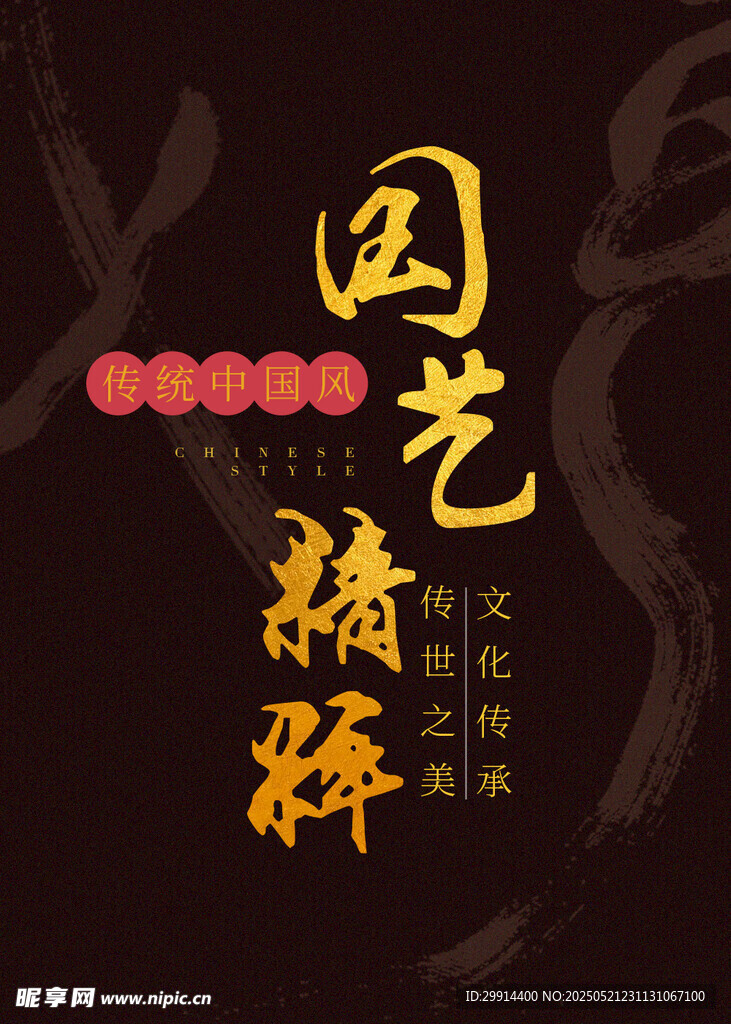 国艺
精粹
传统中国风
CHINESE
STYLE
文化传承
传世之美
昵享网 www.nipic.cn
ID:29914400 NO:20250521231131067100